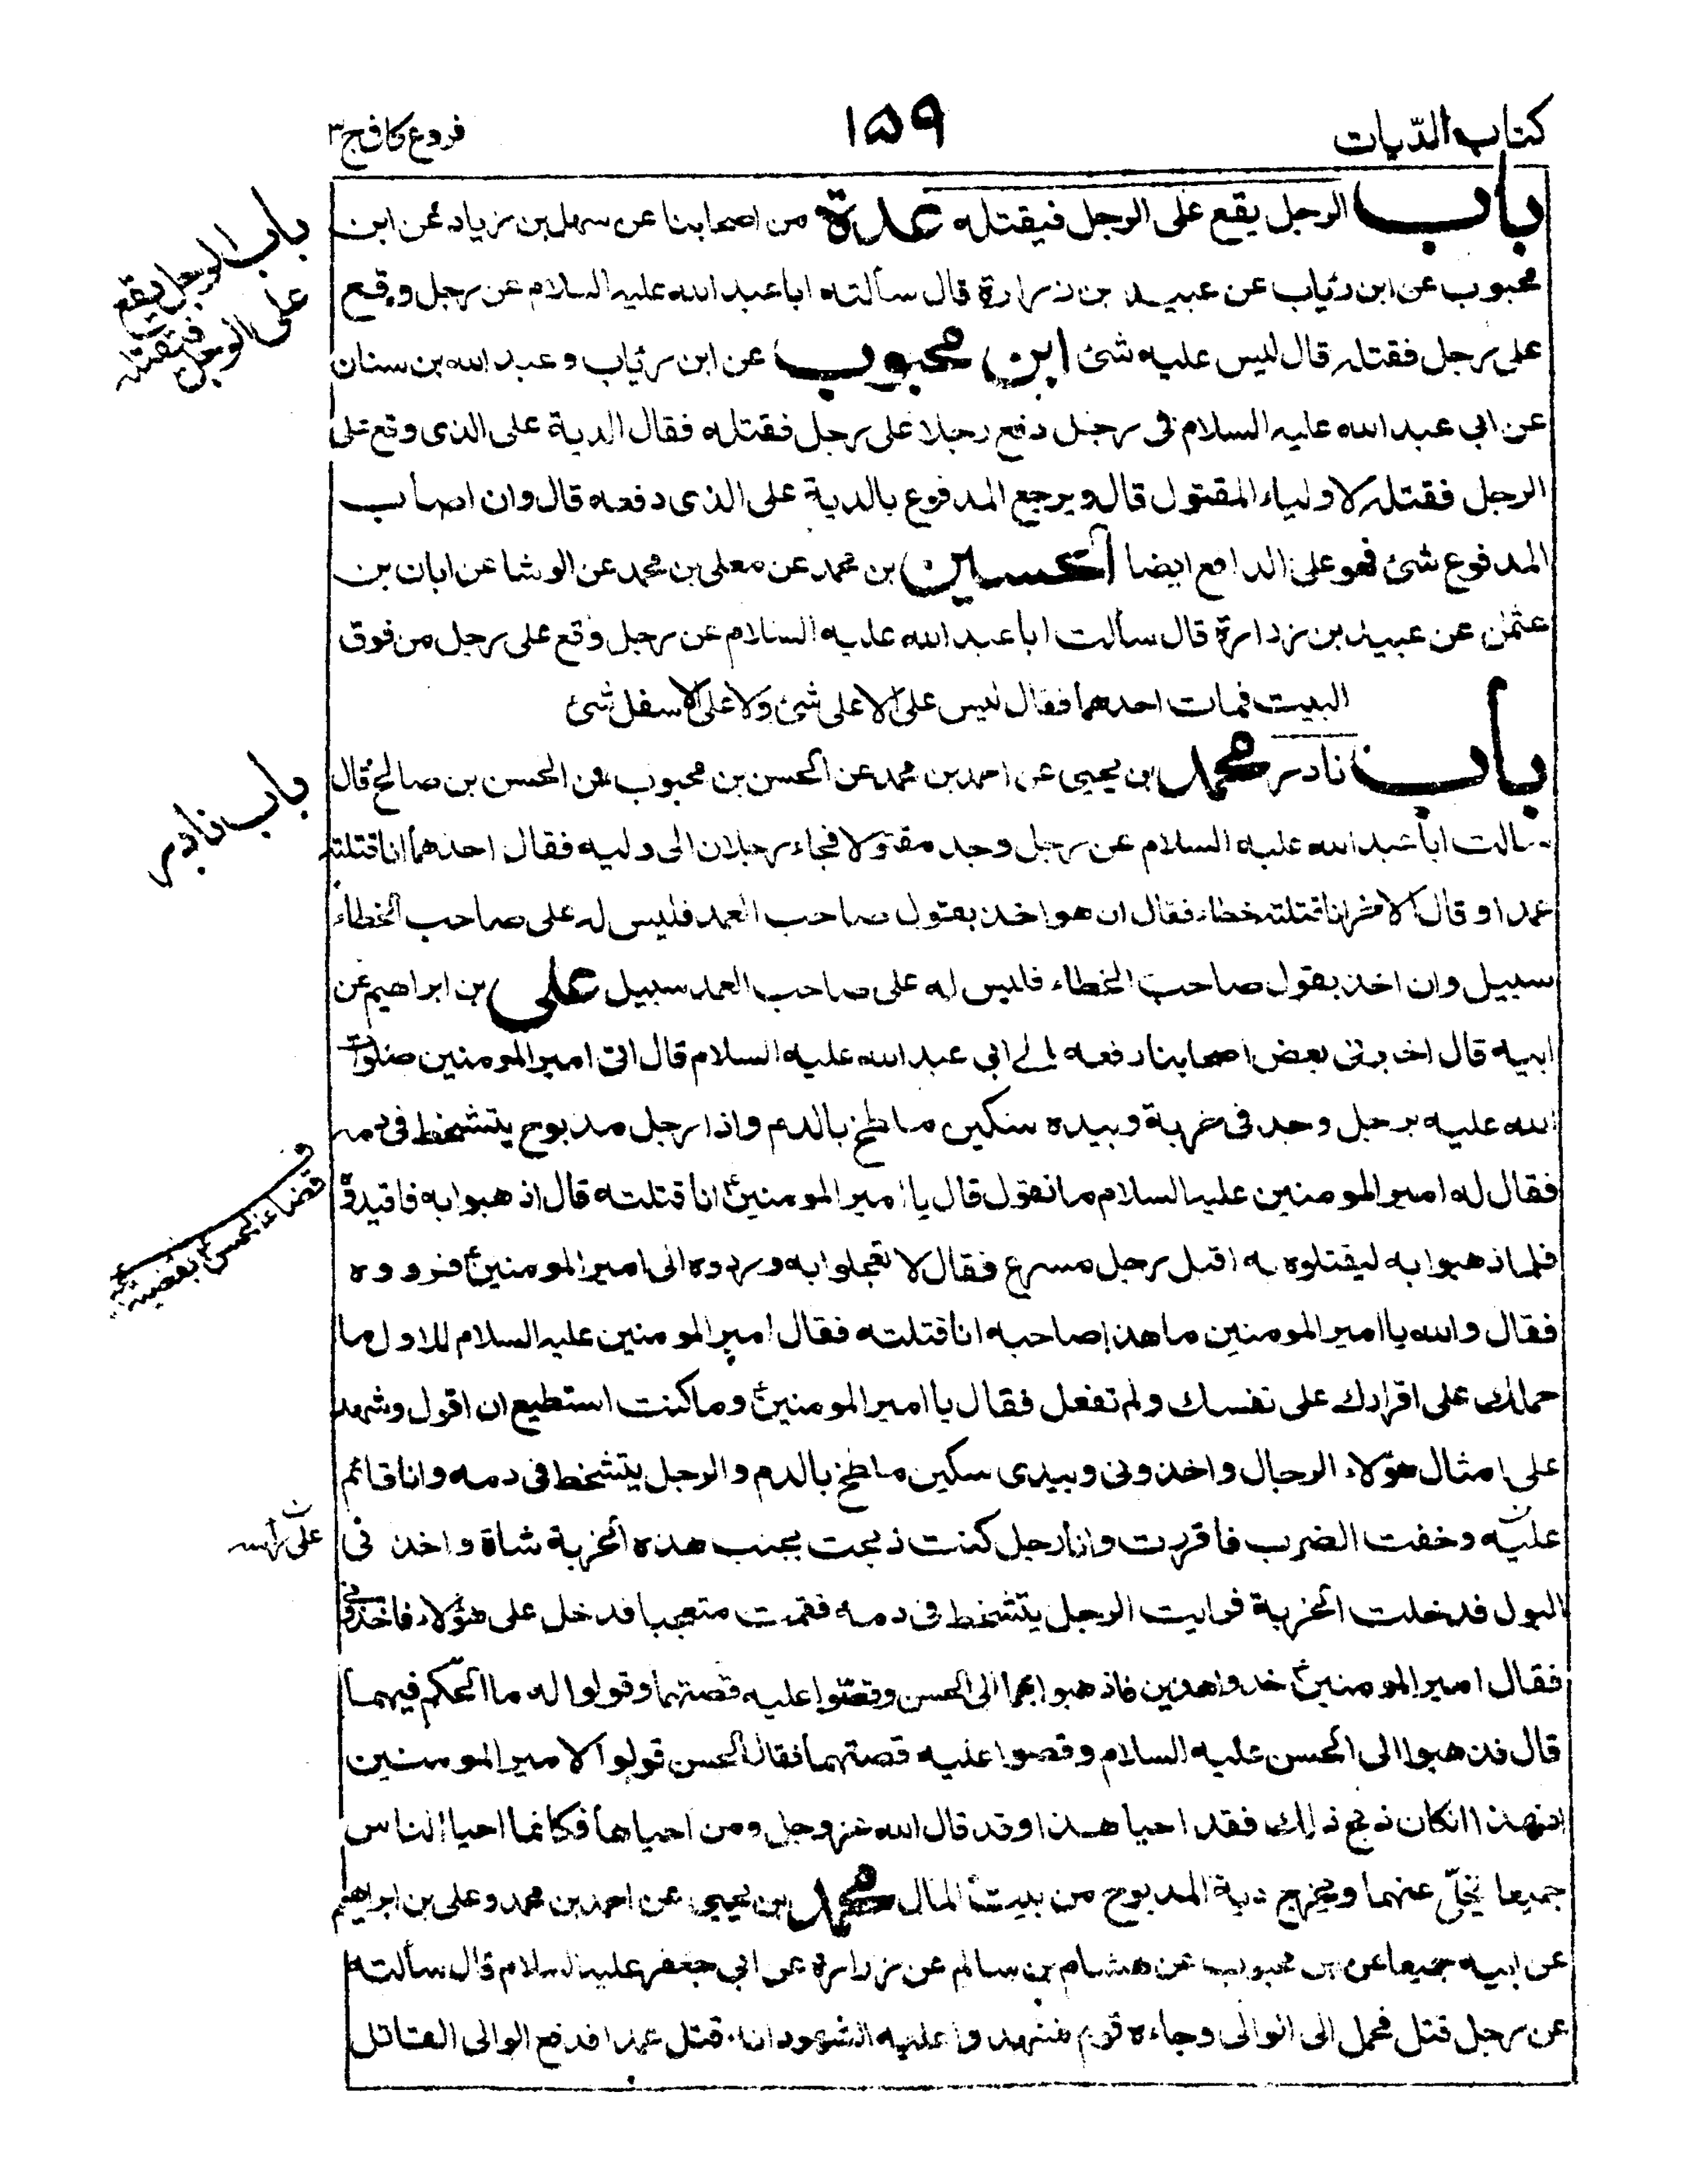 كتاب الدّيات
١٥٩
فروع كافي ج٣
باب الرجل يقع على الرجل فيقتله عدة من اصحابنا عن سهل بن زياد عن ابن
محبوب عن ابن رئاب عن عبيد بن زرارة قال سألته اباعبد الله عليه السلام عن رجل وقع
على رجل فقتله قال ليس عليه شئ ابن محبوب عن ابن رئياب وعبد الله بن سنان
عن ابي عبد الله عليه السلام في رجل دفع رجلا على رجل فقتله فقال الدية على الذى وقع على
الرجل فقتله لاولياء المقتول قال ويرجع المدفوع بالدية على الذى دفعه قال وان اصاب
المدفوع شئ فهو على الدافع ايضا الحسين بن محمد عن معلى بن محمد عن الوشا عن ابان بن
عثمن عن عبيد بن زرارة قال سألت اباعبد الله عليه السلام عن رجل وقع على رجل من فوق
البيت فمات احدهما فقال ليس على الاعلى شئ ولا على الاسفل شئ
باب نادر محمد بن يحيى عن احمد بن محمد عن الحسن بن محبوب عن الحسن بن صالح قال
سالت اباعبد الله عليه السلام عن رجل وجد مقتولا فجاء رجلان الى وليه فقال احدهما انا قتلته
عمدا وقال الاخر انا قتلته خطاء فقال ان هو اخذ بقول صاحب العمد فليس له على صاحب الخطاء
سبيل وان اخذ بقول صاحب الخطاء فليس له على صاحب العمد سبيل على بن ابراهيم عن
ابيه قال اخبرنى بعض اصحابنا رفعه الى ابي عبد الله عليه السلام قال اتى امير المومنين صلوات
الله عليه برجل وجد فى خربة وبيده سكين ملطخ بالدم واذا رجل مذبوح يتشحط فى دمه
فقال له امير المومنين عليه السلام ما تقول قال يا امير المومنينؑ انا قتلته قال اذهبوا به فاقيدوه
فلما ذهبوا به ليقتلوه به اقبل رجل مسرع فقال لا تعجلوا به وردوه الى امير المومنينؑ فردوه
فقال والله يا امير المومنين ما هذا صاحبه انا قتلته فقال امير المومنين عليه السلام للاول ما
حملك على اقرارك على نفسك ولم تفعل فقال يا امير المومنينؑ وما كنت استطيع ان اقول وشهد
على امثال هؤلاء الرجال واخذونى وبيدى سكين ملطخ بالدم والرجل يتشحط فى دمه وانا قائم
عليه وخفت الضرب فاقررت وانا رجل كنت ذبحت بجنب هذه الخربة شاة واخذنى
البول فدخلت الخربة فرايت الرجل يتشحط فى دمه فقمت متعجبا فدخل على هؤلاء فاخذونى
فقال امير المومنينؑ خذوا هذين فاذهبوا بهما الى الحسن وقصّوا عليه قصتهما وقولوا له ما الحكم فيهما
قال فذهبوا الى الحسن عليه السلام وقصوا عليه قصتهما فقال الحسن قولوا لامير المومنين
ان هذا انكان ذبح ذلك فقد احيا هذا وقد قال الله عز وجل ومن احياها فكانما احيا الناس
جميعا يخلّى عنهما ويخرج دية المذبوح من بيت المال محمد بن يحيى عن احمد بن محمد وعلى بن ابراهيم
عن ابيه جميعا عن ابن محبوب عن هشام بن سالم عن زرارة عن ابي جعفر عليه السلام قال سألته
عن رجل قتل فحمل الى الوالى وجاءه قوم فشهدوا عليه الشهود انه قتل عمدا فدفع الوالى القاتل
باب الرجل يقع
على الرجل
فيقتله
باب نادر